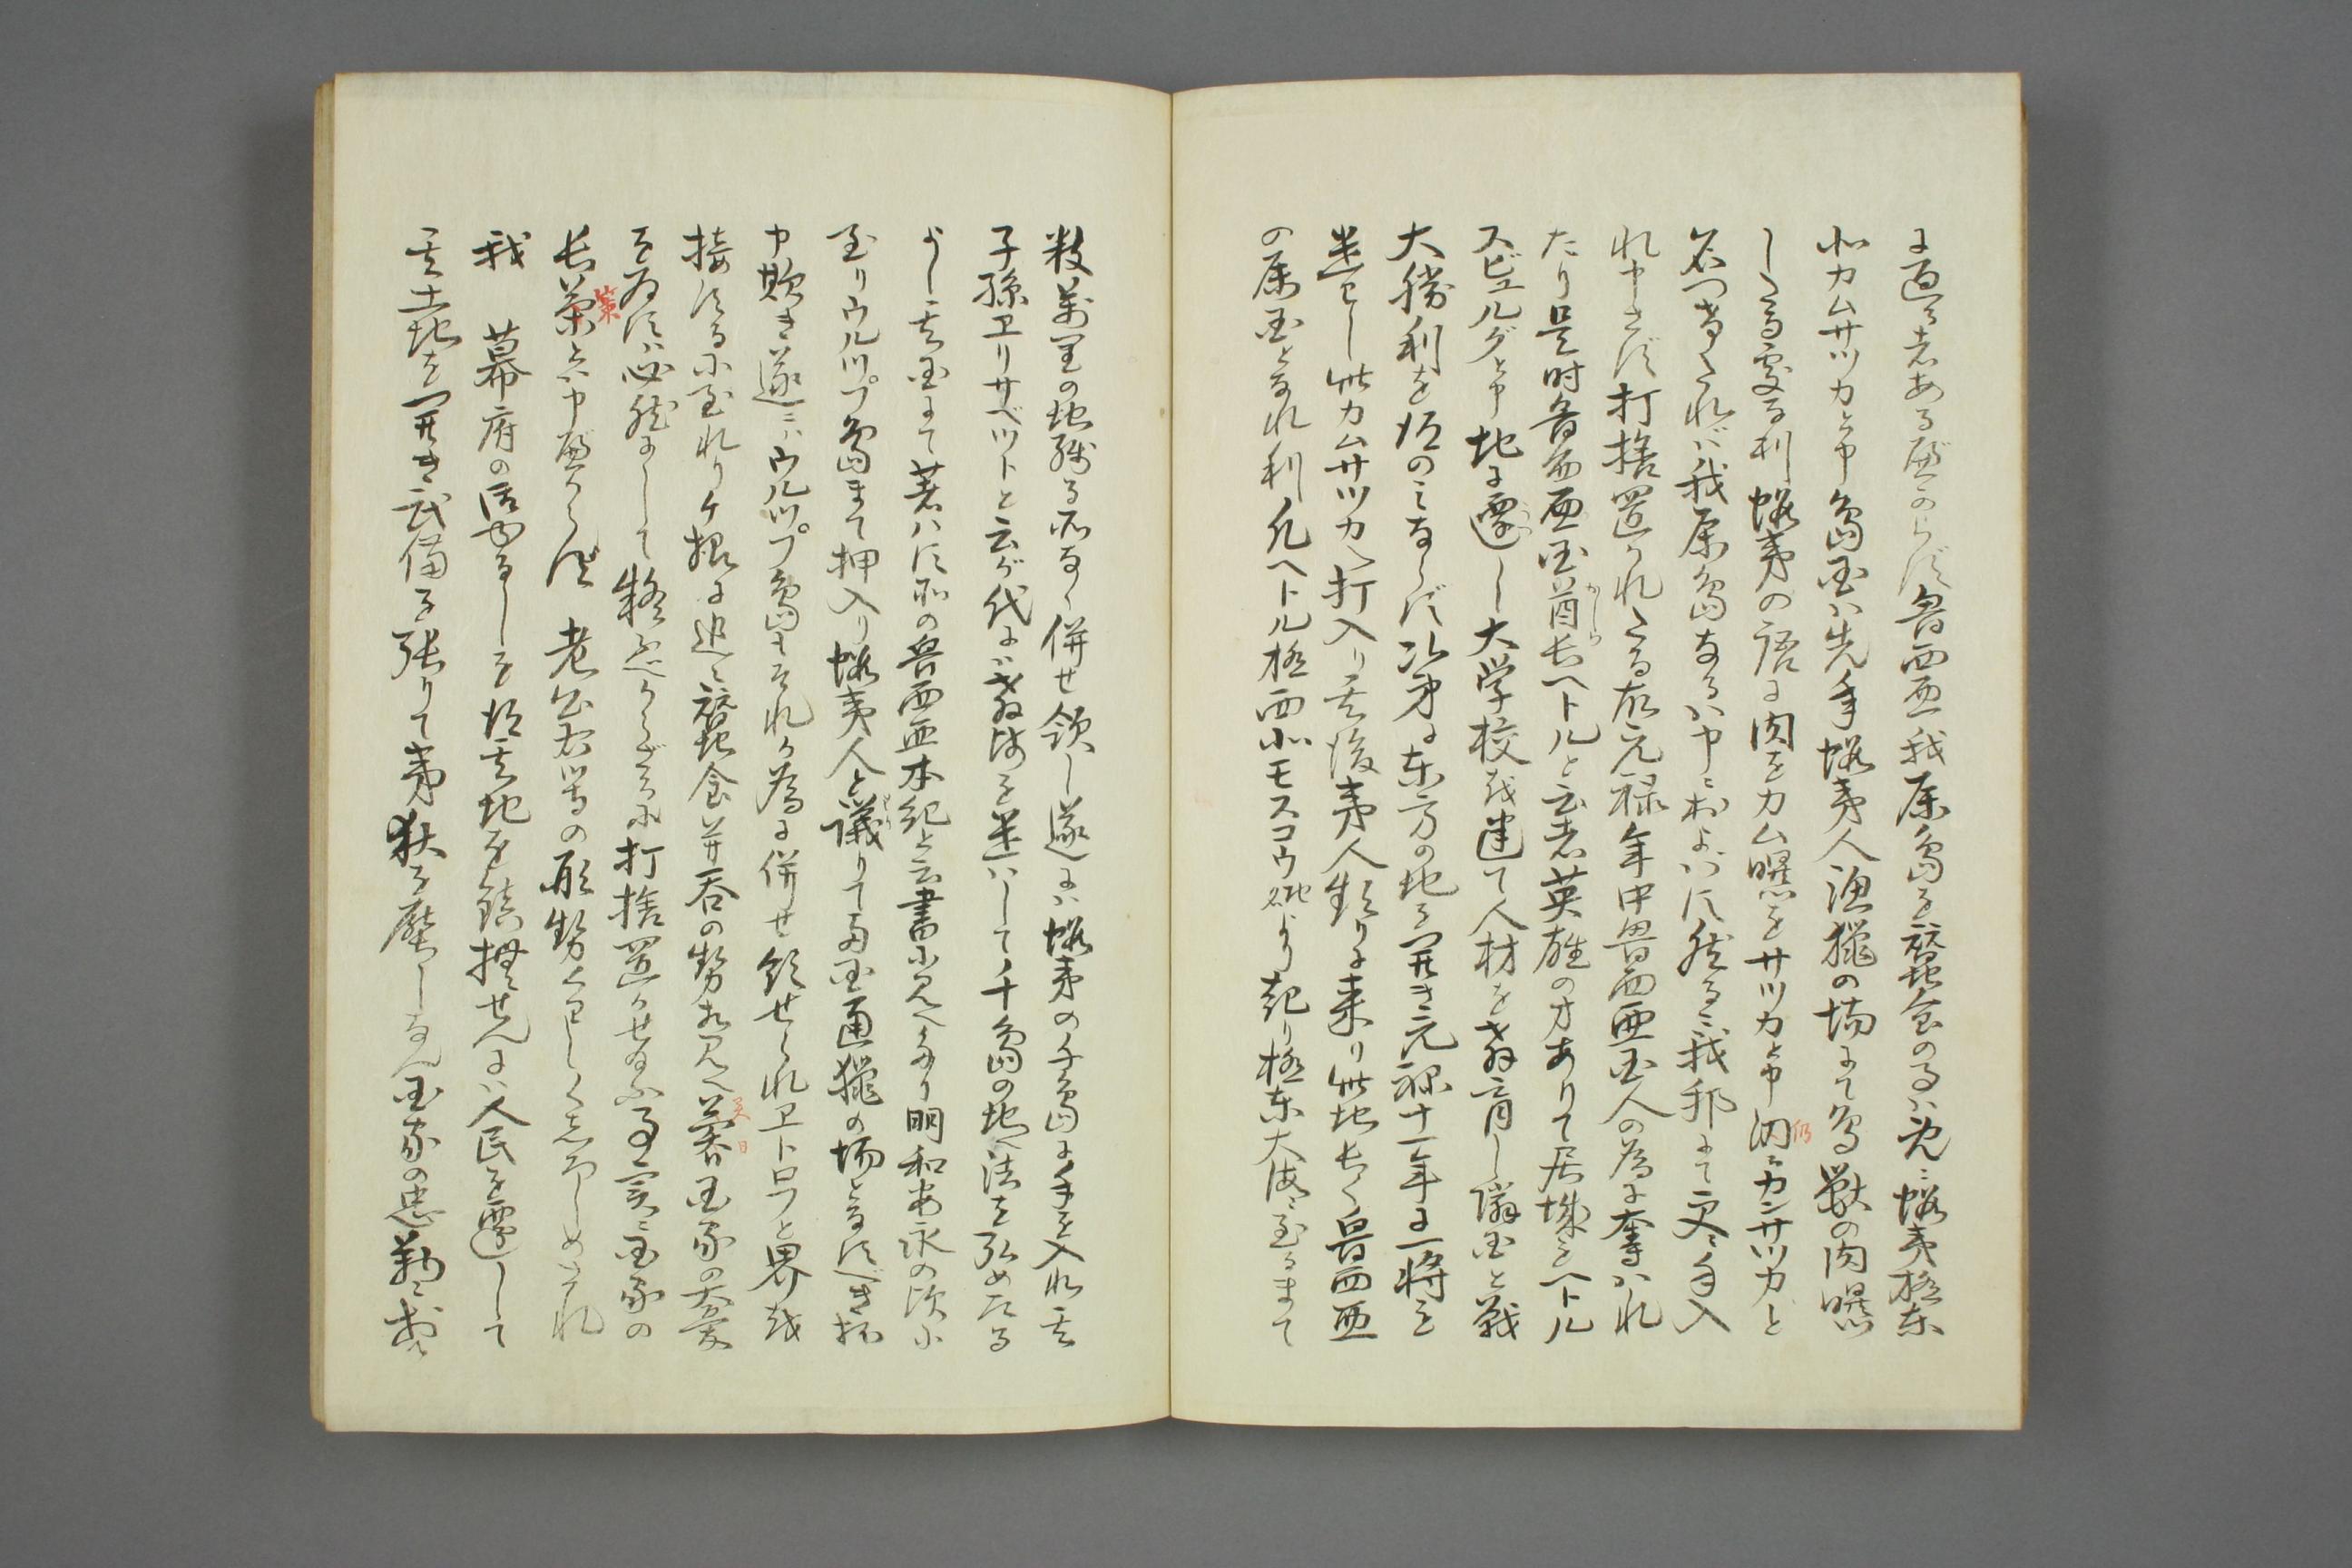 に過る者あるべからず魯西亜我属島を蚕食のるハ既ニ蝦夷極東
北カムサツカと申島国ハ先年蝦夷人漁猟の場にて鳥獣の肉曝
したる処なり蝦夷の語に肉をカム曝をサツカと申仍てカンサツカと
名つけたれバ我属島なるハ申ニおよハず然るに我邦にて更に手入
れ申さず打捨置かれたる故元禄年中魯西亜国人の為に奪ハれ
たり是時魯西亜国酋長ヘトルと云者英雄の才ありて居城をヘトル
スビエルグと申地に遷し大学校を建て人材を教育し隣国と戦
大勝利を得のミならず次第に東方の地を開き元禄十一年に一将を
遣ハし此カムサツカへ打入り其後夷人頻りに来り此地長く魯西亜
の属国となれり凡ヘトル極西北モスコウ地名より起り極東大海ニ至るまて
数万里の地残る所なく併せ領し遂にハ蝦夷の千島に手を入れ其
子孫ヱリサベツトと云が代にハ教師を遣ハして千島の地へ法を弘めたる
よし其国にて著ハす所の魯西亜本紀と云書に見へたり明和安永の頃に
至りウルツプ島まて押入り蝦夷人と議りて両国通猟の場となすべき抔
申欺き遂ニハウルツプ島もそれが為に併せ領せられヱトロフと界を
接するに至れりケ様に追々蚕食并呑の勢相見へ若国家の大憂
を為すハ必然にして軽忽べからざるに打捨置かせ給ふ事実ニ国家の
長策と申べからず 老公右等の形勢くわしくしろしめされ
我 幕府の活ゆるしを得其地を鎮撫せんにハ人民を遷して
其土地を開き武備を張りて夷狄を壓しなん国家の忠勤ニおゐ